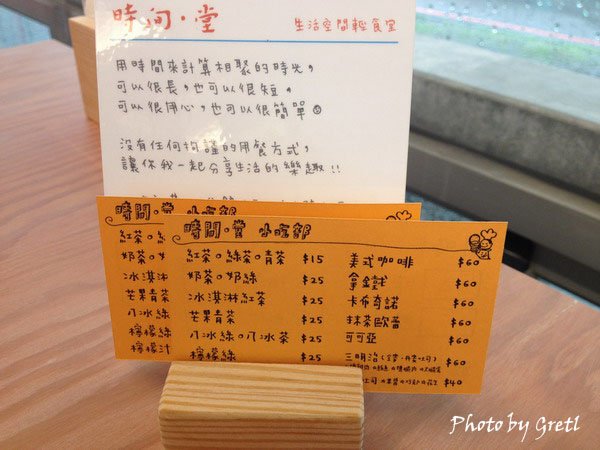 時间·堂 生活空間輕食堂
用時間來計算相聚的時光,
可以很長,也可以很短,
可以很用心,也可以很簡單。
沒有任何拘謹的用餐方式,
讓你我一起分享生活的樂趣!!
時間·堂 小吃部
紅茶。綠
奶茶。奶
冰淇淋
芒果青茶
八冰綠
檸檬綠
檸檬汁
時間·堂 小吃部
紅茶。綠茶。青茶 $15
奶茶。奶綠 $25
冰淇淋紅茶 $25
芒果青茶 $25
八冰綠。八冰茶 $25
檸檬綠 $25
美式咖啡 $60
拿鐵 $60
卡布奇諾 $60
抹茶歐蕾 $60
可可亞 $60
三明治 $60
$40
Photo by Gretl